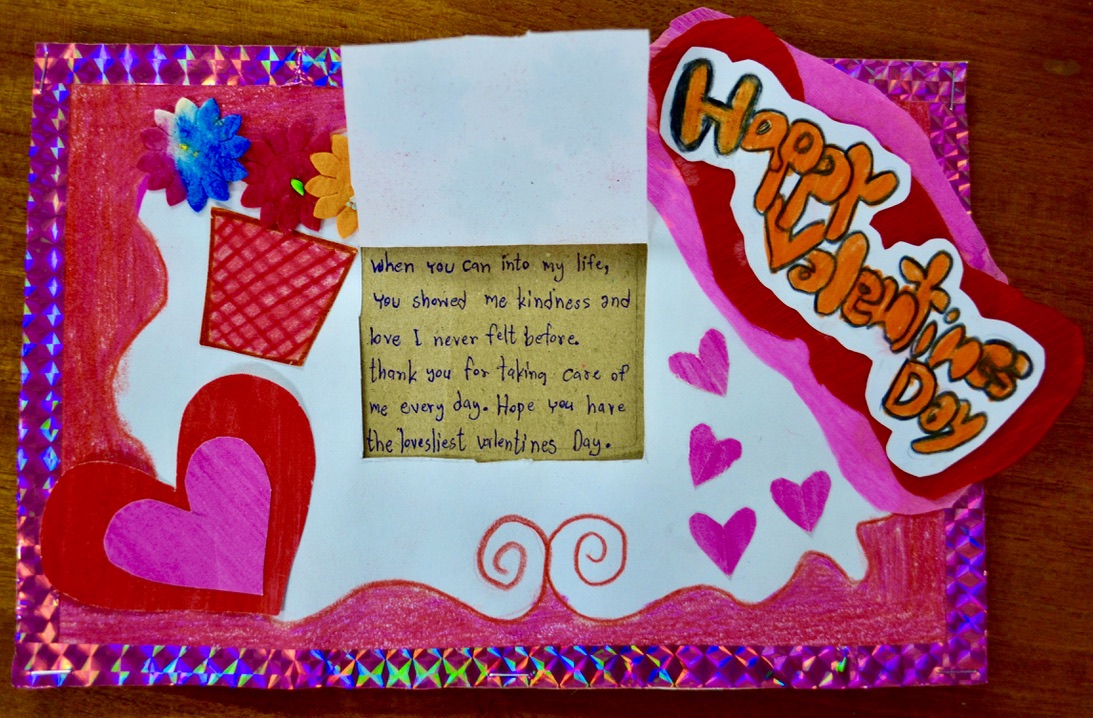 When you can into my life,
you showed me kindness and
love I never felt before.
thank you for taking care of
me every day. Hope you have
the lovesliest valentines Day.
Happy
Valentines
Day